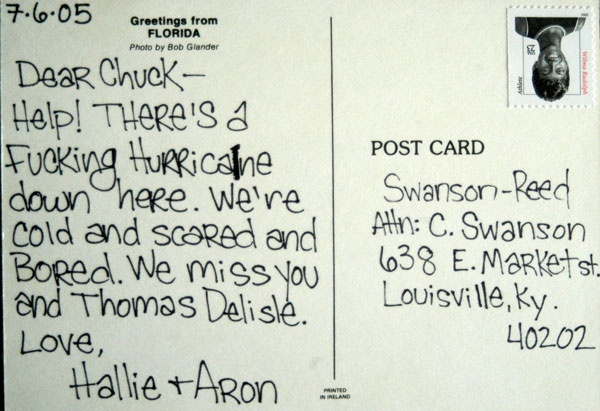 7.6.05
Greetings from
FLORIDA
Photo by Bob Glander
Dear Chuck—
Help! There's a
Fucking Hurricane
down here. We're
cold and scared and
Bored. We miss you
and Thomas Delisle.
Love,
Hallie + Aron
POST CARD
Swanson-Reed
Attn: C. Swanson
638 E. Market st.
Louisville, Ky.
40202
PRINTED
IN IRELAND
Wilma Rudolph
23
USA
Athlete